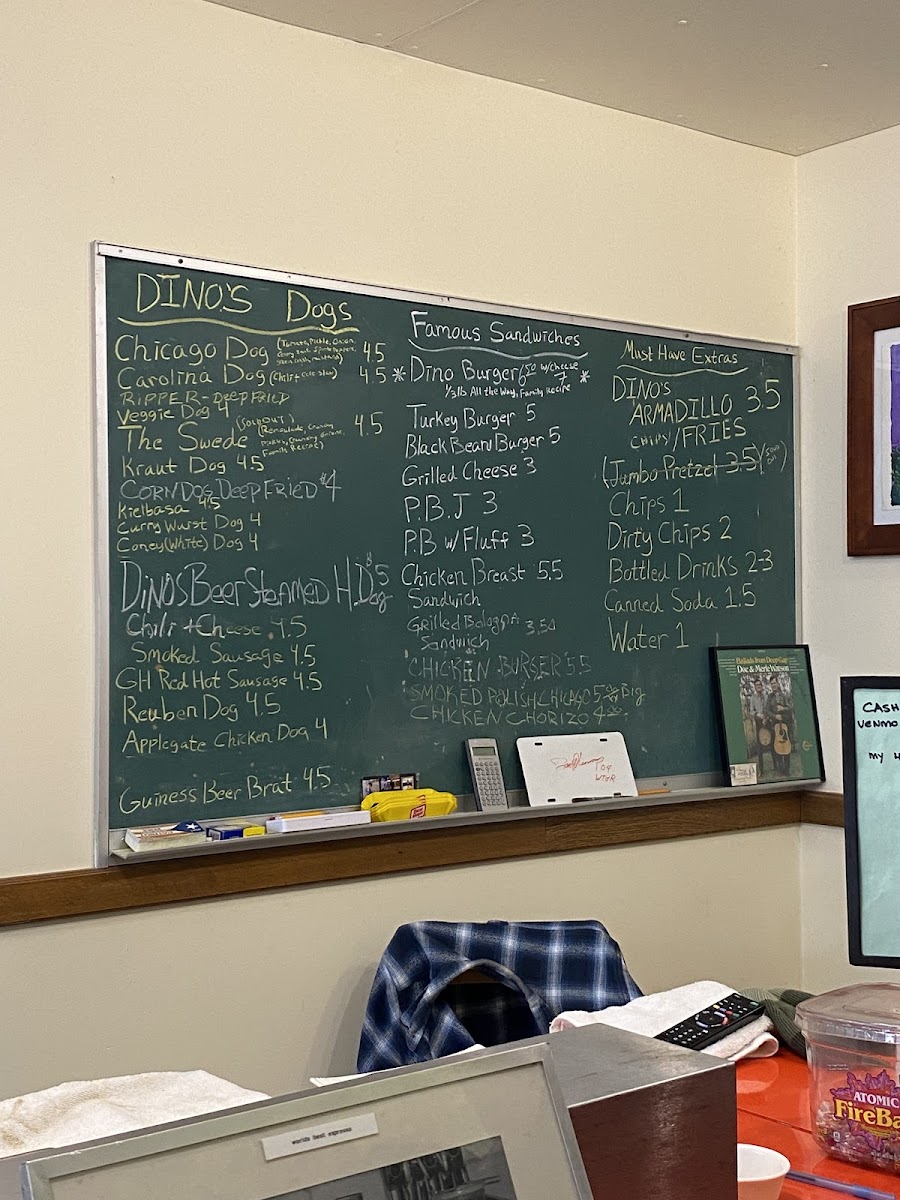 DINO'S Dogs
Chicago Dog (Tomato, Pickle, Onion, 4.5
Carolina Dog (Chili + Cole Slaw) 4.5
RIPPER - DEEP FRIED
Veggie Dog 4
(SOLD OUT)
The Swede (Remoulade, Crunchy 4.5
Pickles, Crunchy Onions,
Family Recipe)
Kraut Dog 4.5
CORNDOG DEEP FRIED $4
Kielbasa 4.5
Curry Wurst Dog 4
Coney (White) Dog 4
DINOS BEER STEAMED H.Dog $5
Chili + Cheese 4.5
Smoked Sausage 4.5
GH Red Hot Sausage 4.5
Reuben Dog 4.5
Applegate Chicken Dog 4
Guiness Beer Brat 4.5
Famous Sandwiches
* Dino Burger 6.50 w/cheese 7 *
1/3 lb All the Way, Family Recipe
Turkey Burger 5
Black Bean Burger 5
Grilled Cheese 3
P.B.J 3
P.B w/ Fluff 3
Chicken Breast 5.5
Sandwich
Grilled Bologna 3.50
Sandwich
CHICKEN BURGER 5.5
SMOKED POLISH CHICAGO 5.00 Big
CHICKEN CHORIZO 4.50
Must Have Extras
DINO'S
ARMADILLO 3.5
CHIPS//FRIES
(Jumbo Pretzel 3.5) (Sold Out)
Chips 1
Dirty Chips 2
Bottled Drinks 2-3
Canned Soda 1.5
Water 1
Ballads from Deep Gap
Doc & Merle Watson
CASH
VENMO
MY
worlds best espresso
ATOMIC
FireBa